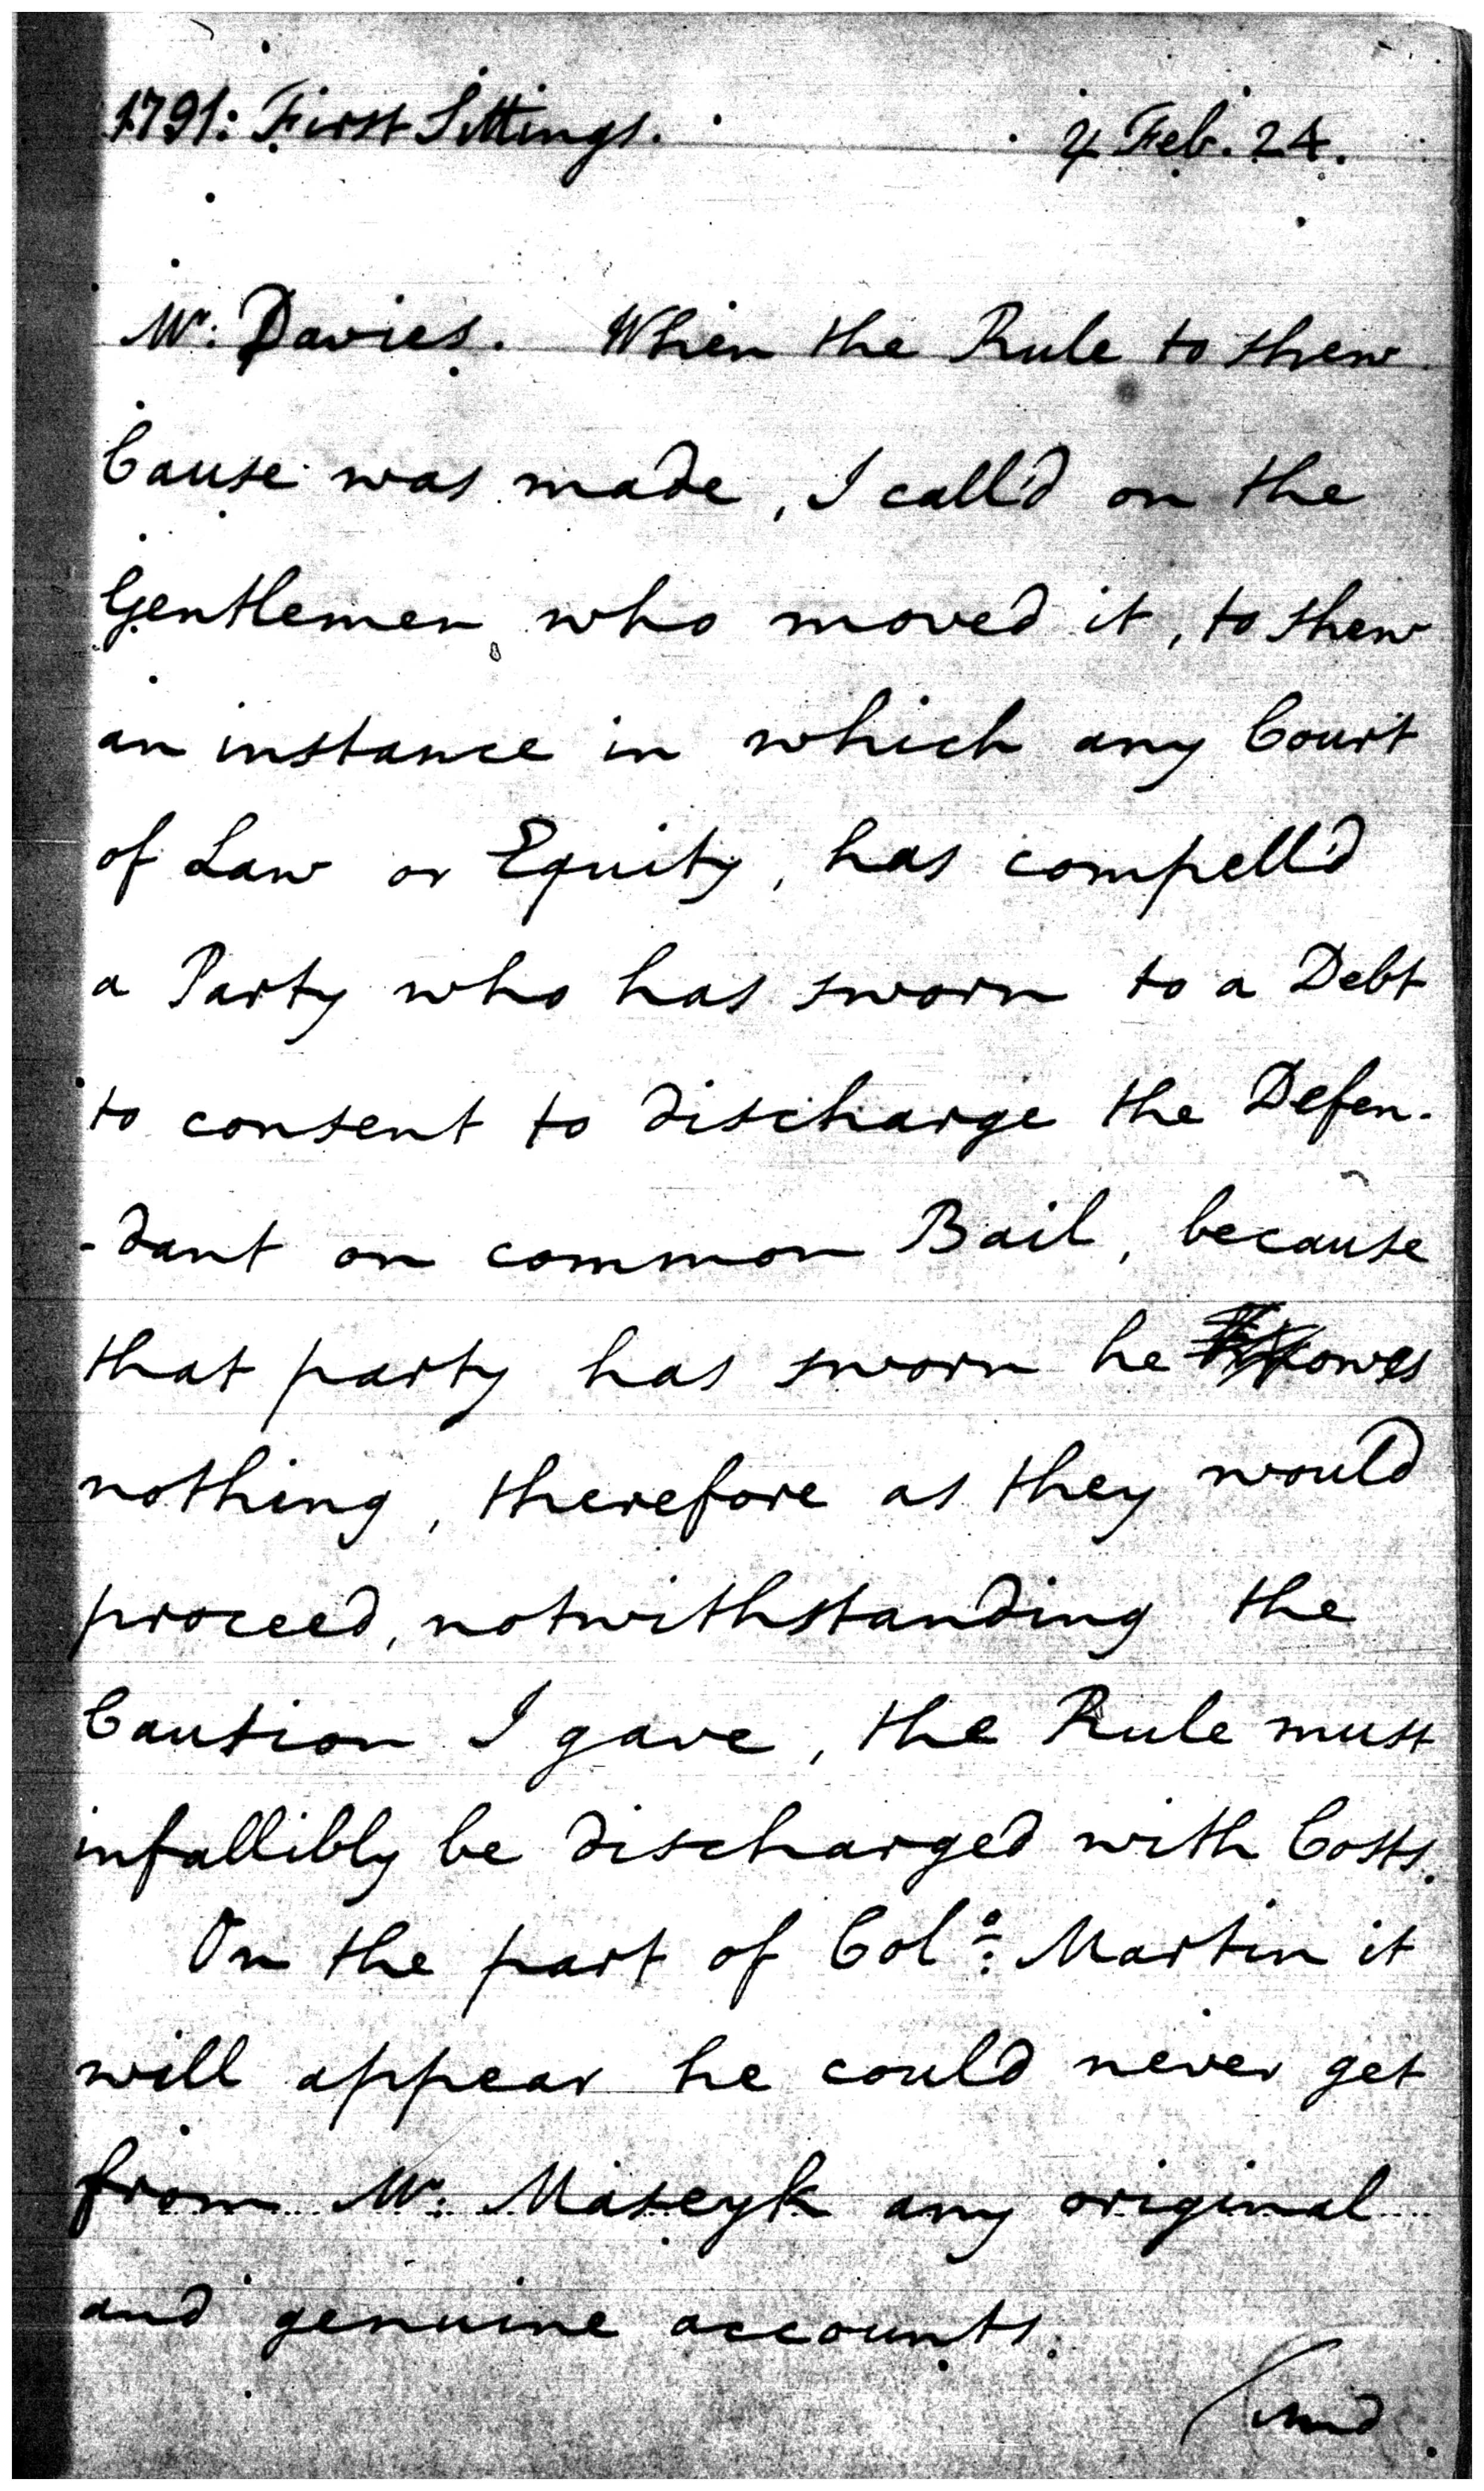 1791: First Sittings. ♃ Feb. 24.
Mr. Davies. When the Rule to shew
Cause was made, I call'd on the
Gentlemen who moved it, to shew
an instance in which any Court
of Law or Equity, has compell'd
a Party who has sworn to a Debt
to consent to discharge the Defen-
-dant on common Bail, because
that party has sworn he owes
nothing, therefore as they would
proceed, notwithstanding the
Caution I gave, the Rule must
infallibly be discharged with Costs.
On the part of Colo: Martin it
will appear he could never get
from Mr. Maseyk any original
and genuine accounts.